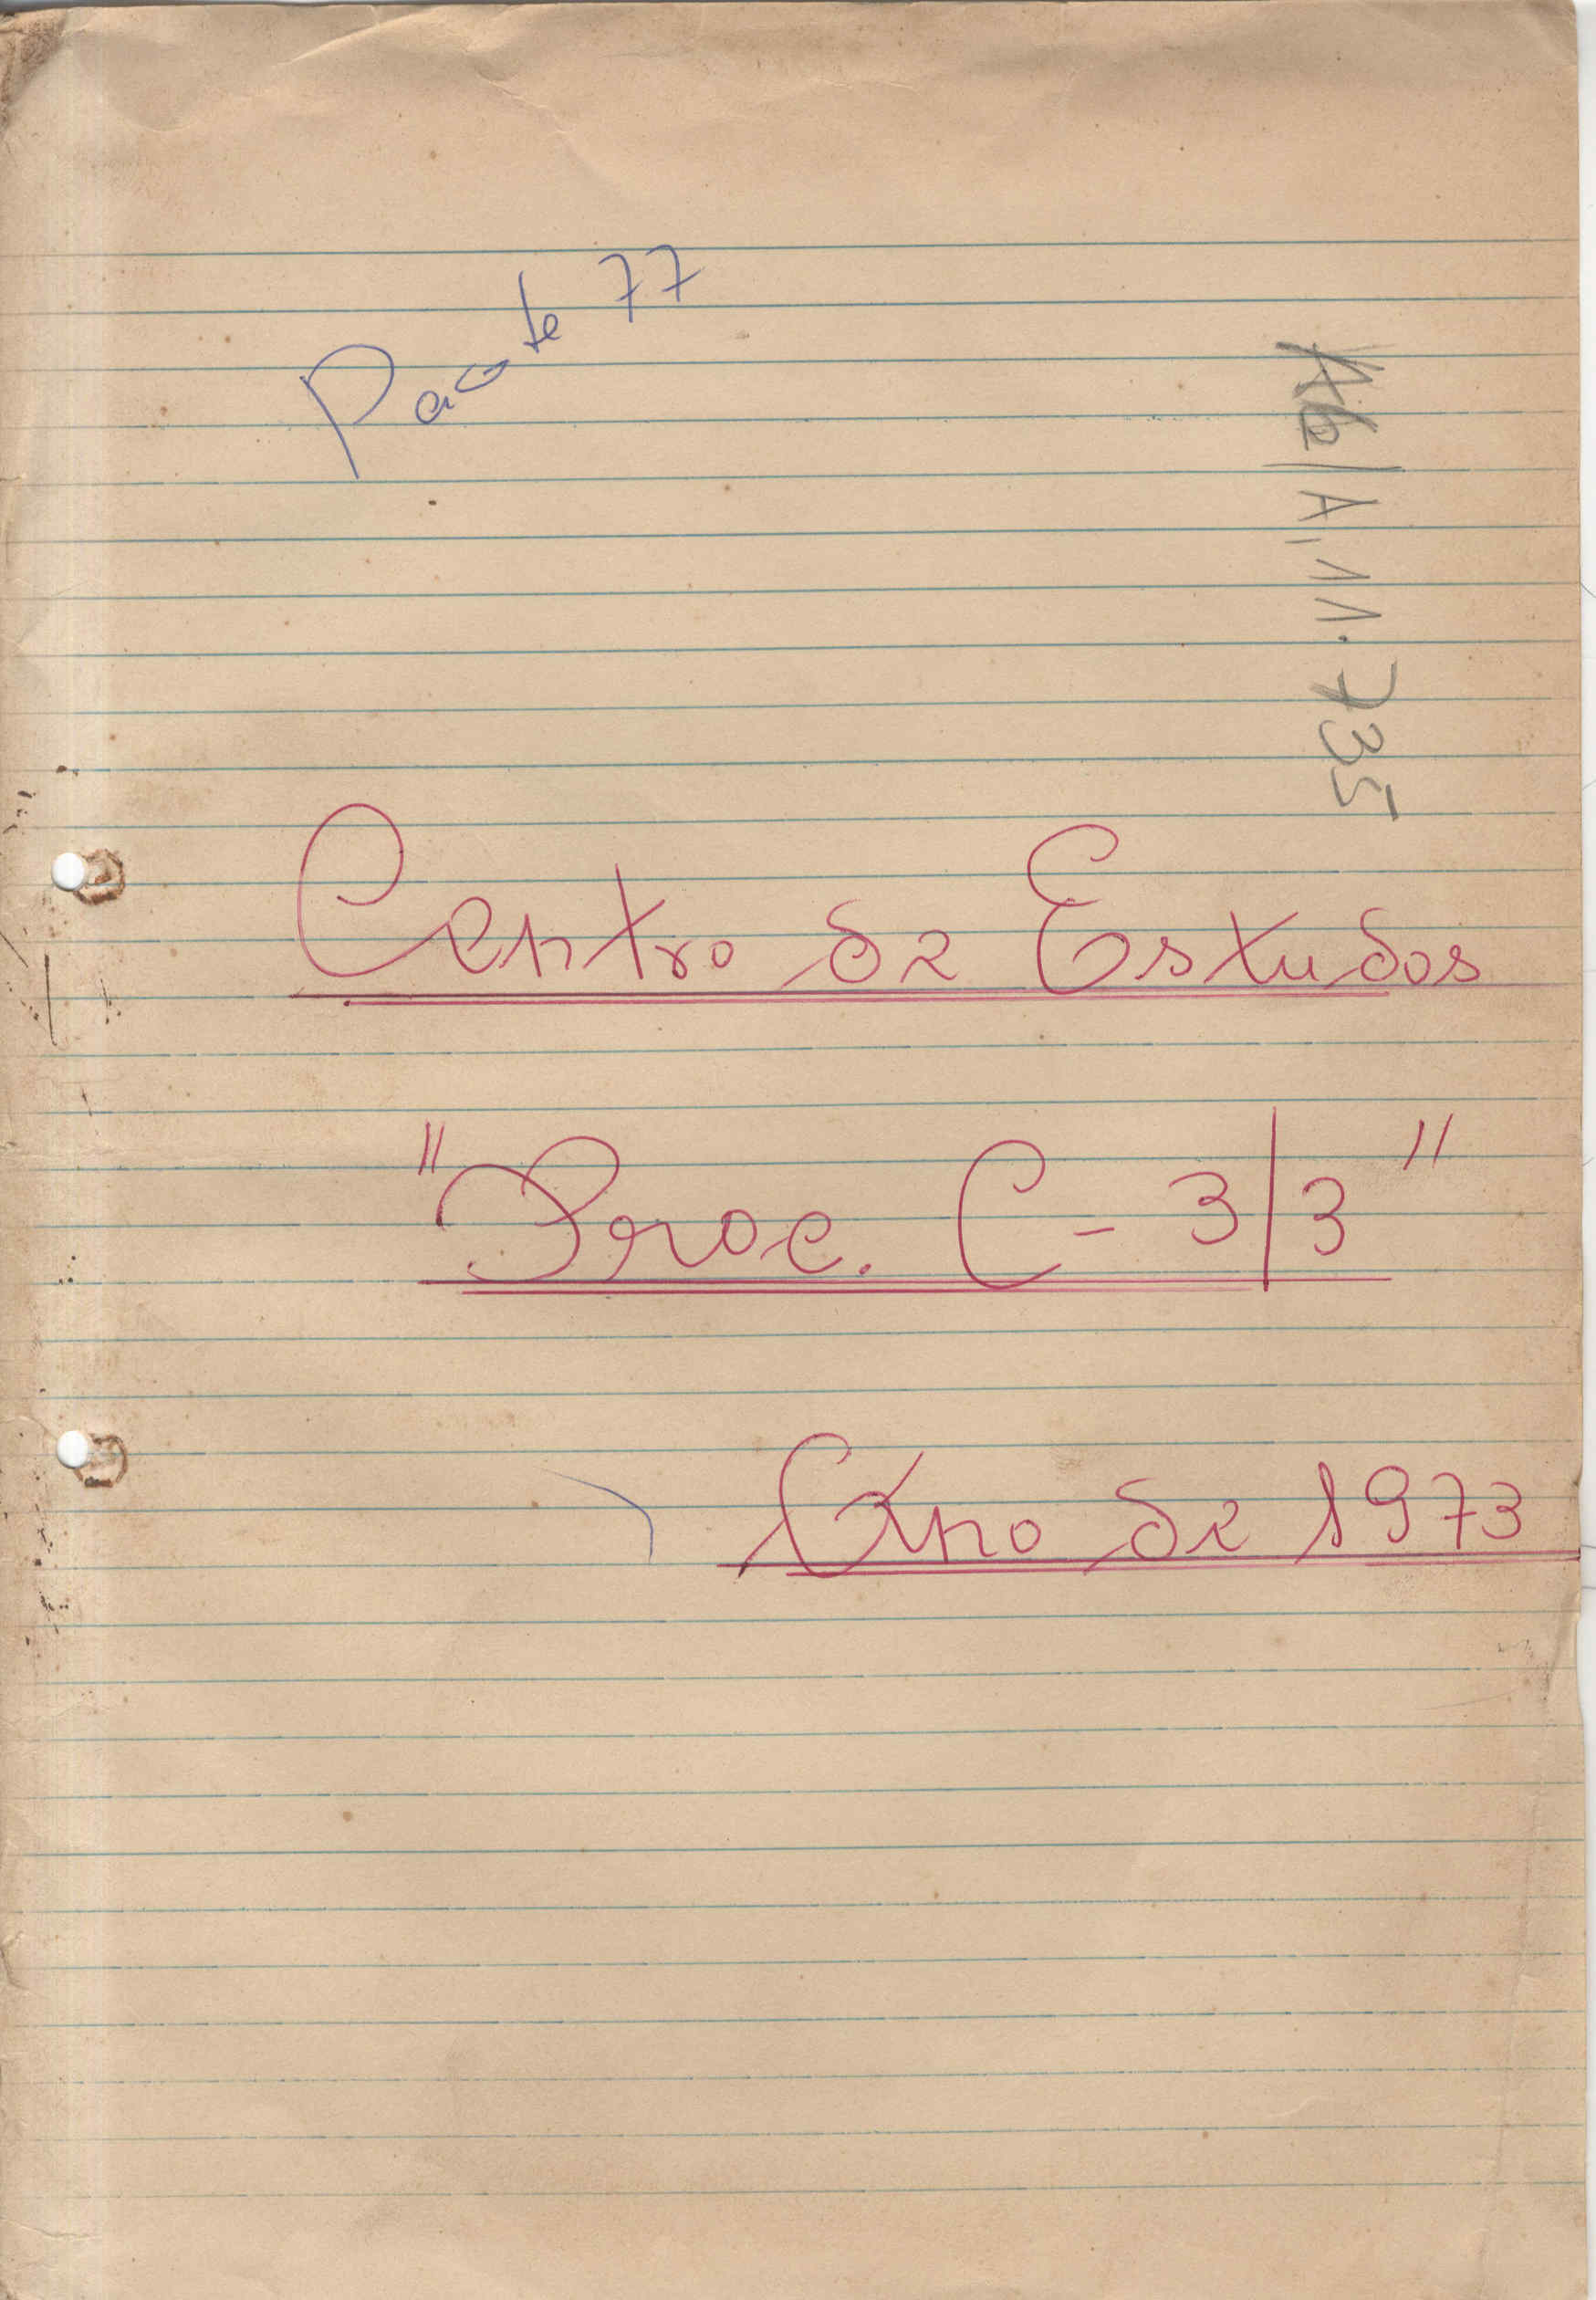 Pacote 77
A.11.735
Centro de Estudos
"Proc. C - 3/3"
Ano de 1973